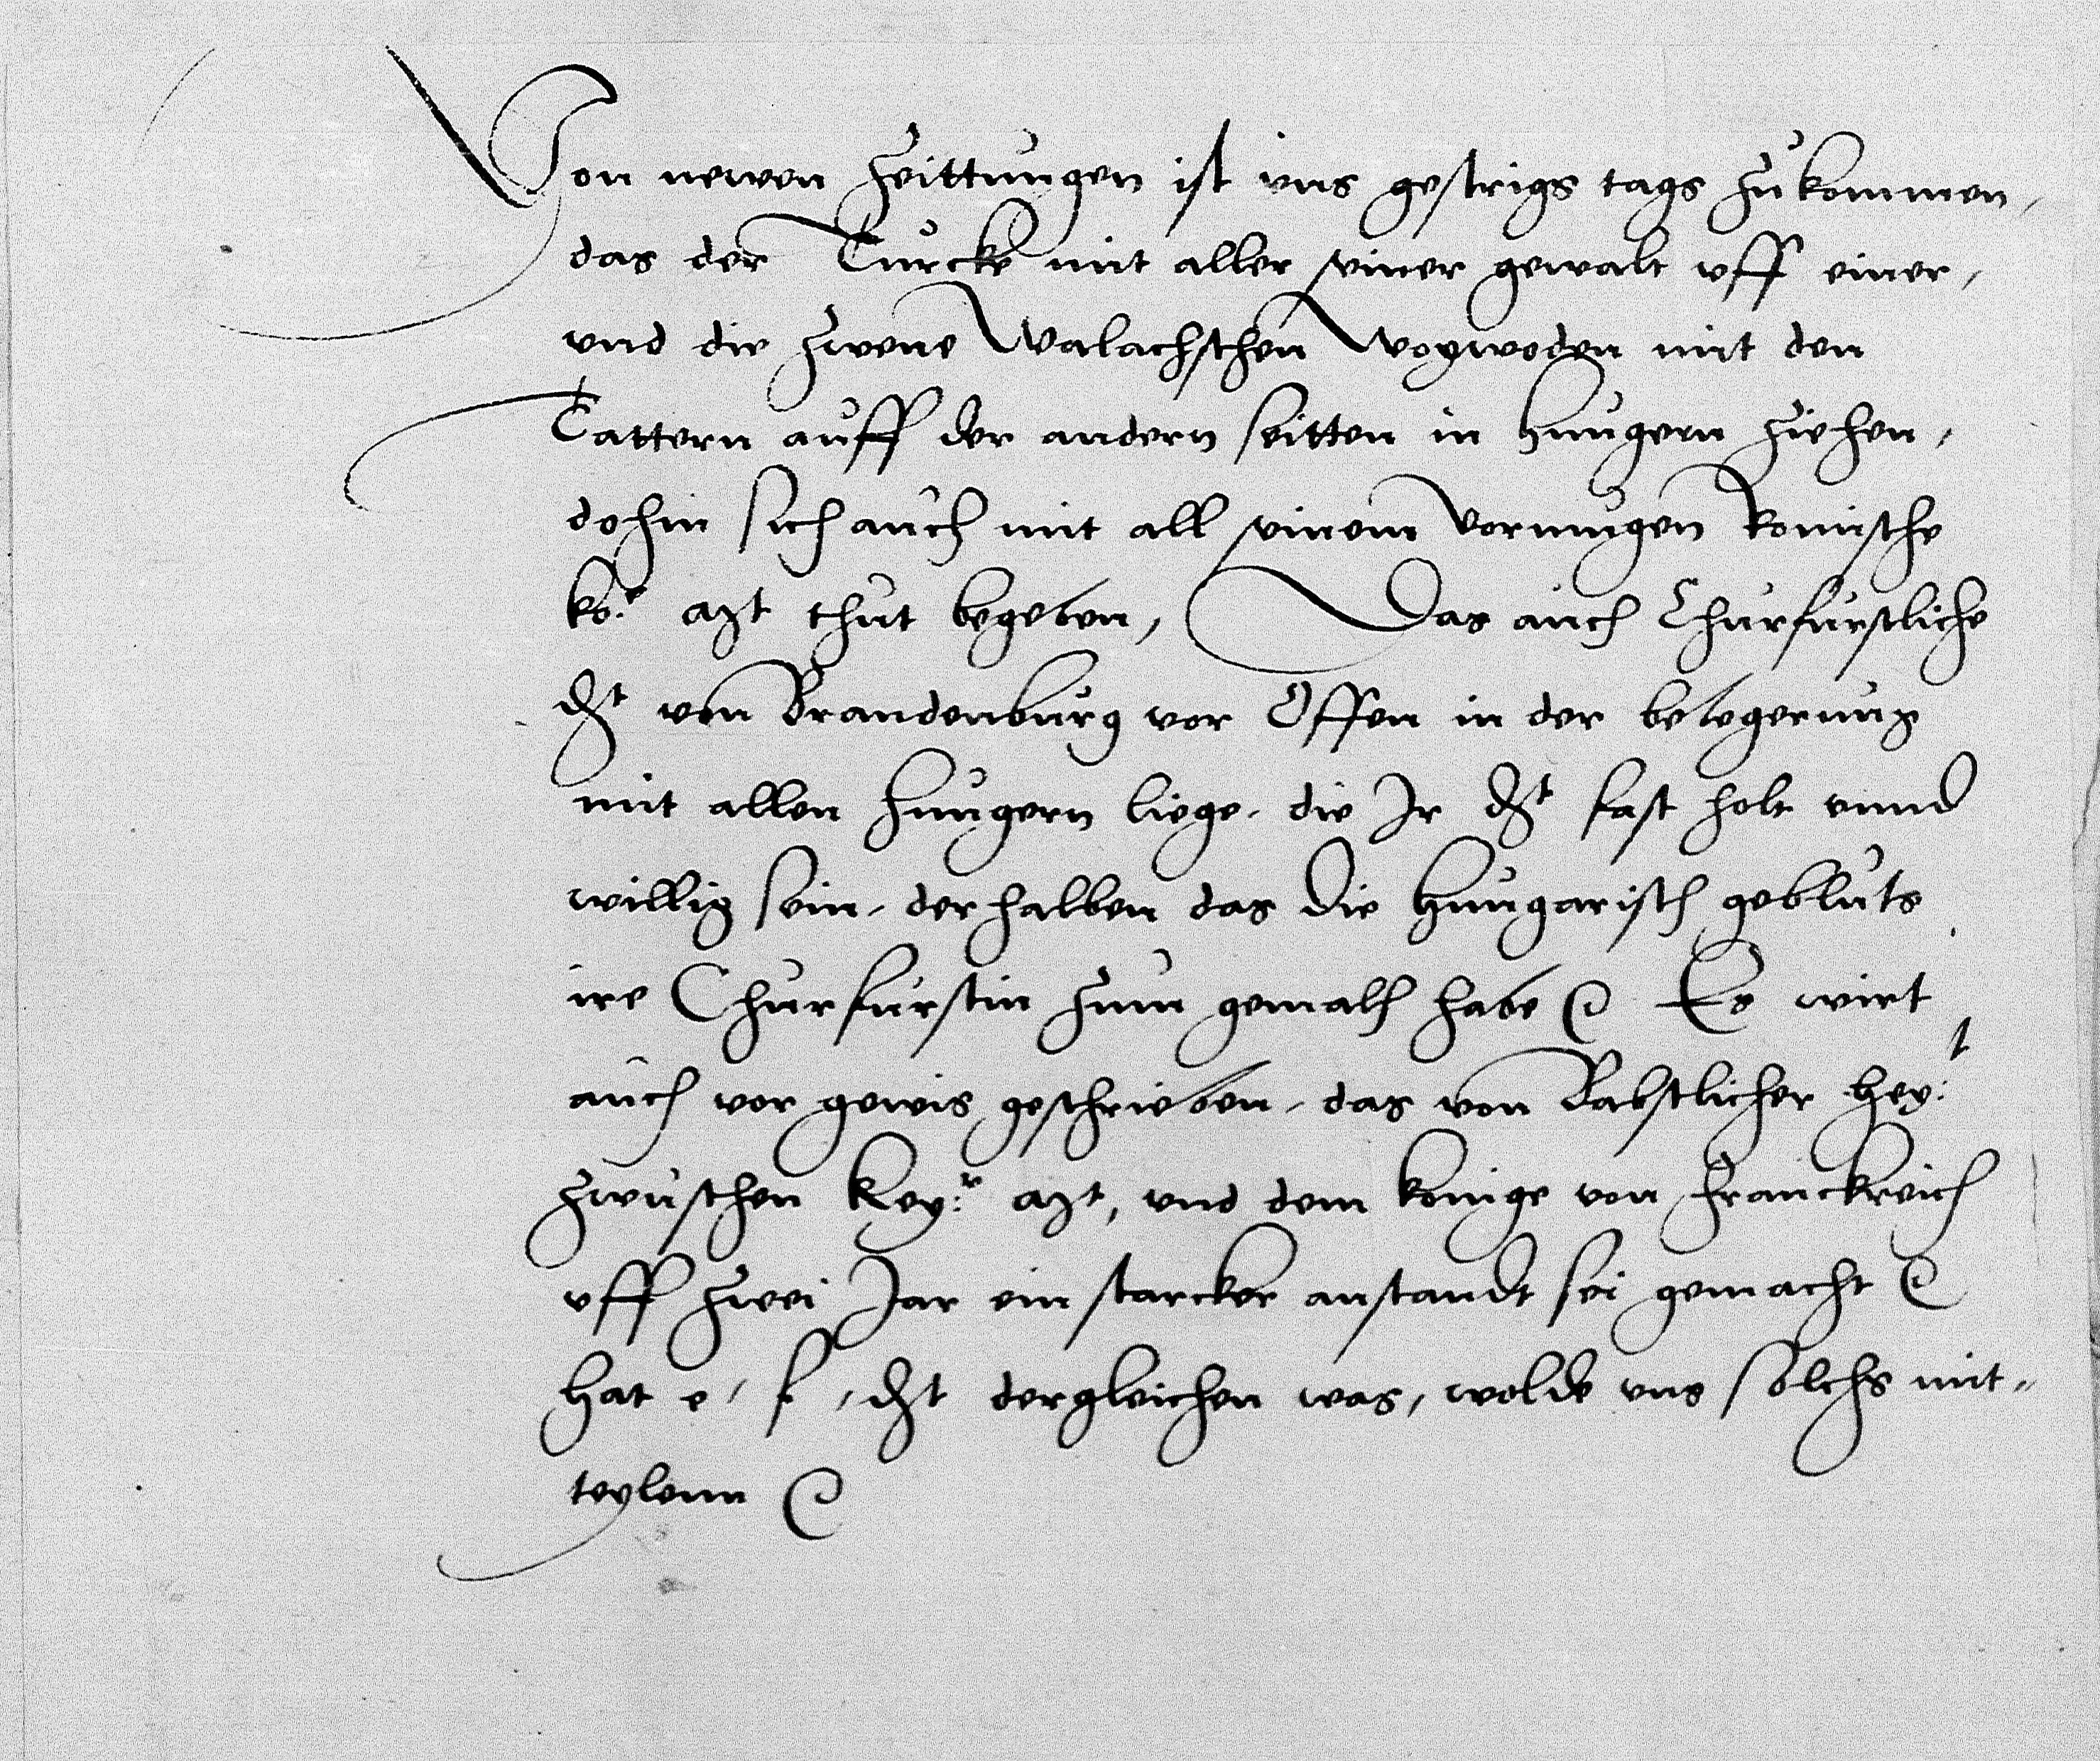 Von newen Zeittungen ist vns gestrigs tags zukommen,
das der Turcke mit aller seiner gewalt vff einer,
vnd die zwene Walachschen Woywoden mit den
Tattern auff der andern seitten in Hungern ziehen,
dohin sich auch mit all seinem vormugen Romische
ko:r Mt thut begeben, Das auch Churfurstliche
Dt von Brandenburg vor Offen in der belegerung
mit allen Hungern liege, die Ir Dt fast holt vnnd
willig sein, derhalben das die Hungarisch gebluts
ire Churfurstin zum gemalh habe Es wirt
auch vor gewis geschrieben, das von Babstlicher Hey:t
zwuschen Key:r Mt, vnd dem konige von Franckreich
vff zwei Jar ein starcker anstandt sei gemacht
Hat e, f, Dt dergleichen was, wolde vns solchs mit=
teylenn